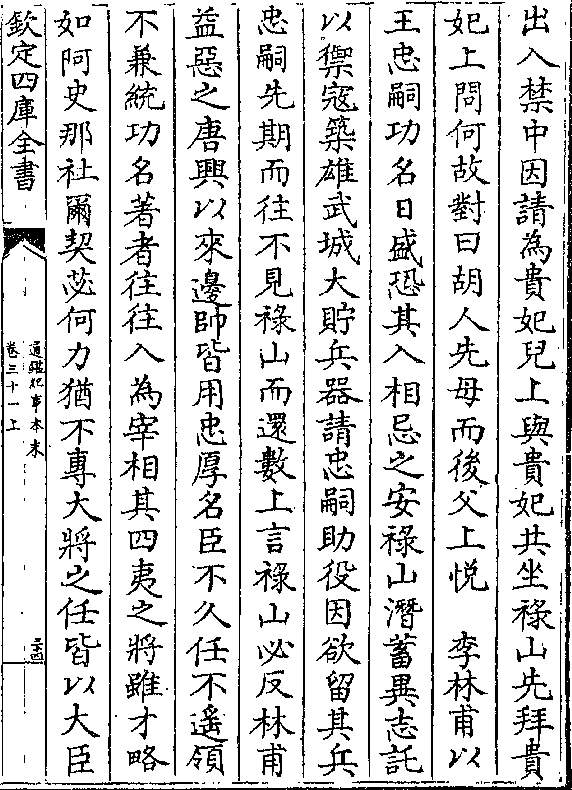 出入禁中因請為貴妃兒上與貴妃共坐祿山先拜貴
妃上問何故對曰胡人先母而後父上悅　李林甫以
王忠嗣功名日盛恐其入相忌之安祿山潛蓄異志託
以禦寇築雄武城大貯兵器請忠嗣助役因欲留其兵
忠嗣先期而往不見祿山而還數上言祿山必反林甫
益惡之唐興以來邊帥皆用忠厚名臣不久任不遙領
不兼統功名著者往往入為宰相其四夷之將雖才略
如阿史那社爾契苾何力猶不專大將之任皆以大臣
欽定四庫全書
通鑑紀事本末
卷三十一上
二十四